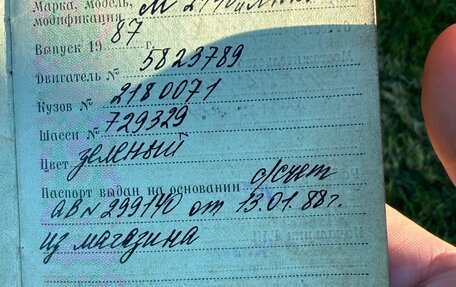 Марка, модель, М 2140
модификация
Выпуск 19 87 г.
Двигатель № 5823789
Кузов № 2180071
Шасси № 729329
Цвет зеленый
Паспорт выдан на основании с/счет
АВ № 299140 от 13.01.88 г.
из магазина